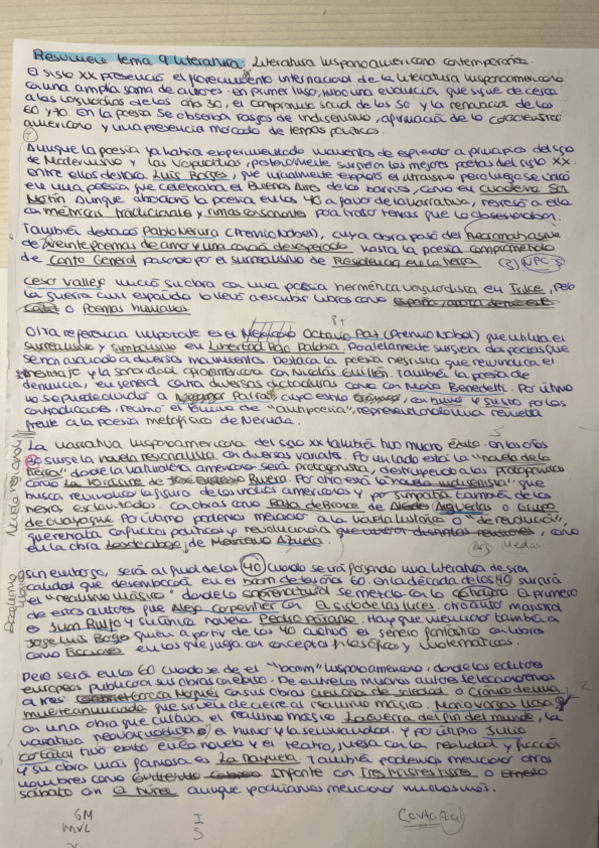 Resumen tema 9 literatura: Literatura hispanoamericana contemporánea.
El siglo XX presenció el florecimiento internacional de la literatura hispanoamericana
con una amplia gama de autores. en primer lugar, hubo una evolución que sigue de cerca
a las vanguardias de los años 30, el compromiso social de los 50 y la renovación de los
60 y 70. En la poesía se observa rasgos de indigenismo, afirmación de lo
americano y una presencia marcado de temas políticos.
Aunque la poesía ya había experimentado momentos de esplendor a principios del siglo
de Modernismo y las Vanguardias, posteriormente surgieron los mejores poetas del siglo XX.
entre ellos destaca Luis Borges, que inicialmente exploró el ultraísmo pero luego se volcó
en una poesía que celebraba el Buenos Aires de los barrios, como en Cuaderno San
Martín. Aunque abandonó la poesía en los 40 a favor de la narrativa, regresó a ella
con métricas tradicionales y rimas consonantes para tratar temas que lo obsesionaban.
También destaca Pablo Neruda (Premio Nobel), cuya obra pasó del Neorromanticismo
de Veinte poemas de amor y una canción desesperada hasta la poesía comprometida
de Canto General pasando por el surrealismo de Residencia en la tierra
Cesar Vallejo inició su obra con una poesía hermética vanguardista en Trilce, pero
la guerra civil española lo llevó a escribir libros como España, aparta de mí este
Cáliz o Poemas humanos
Otra referencia importante es el Mexicano Octavio Paz (Premio Nobel) que utiliza el
surrealismo y simbolismo en Libertad bajo Palabra. Paralelamente surgieron otros poetas que
se han asociado a diversos movimientos. Destaca la poesía negrista que reivindica el
mestizaje y la sonoridad afroamericana con Nicolás Guillén. También la poesía de
denuncia, en general contra diversas dictaduras como con Mario Benedetti. Por último
no se puede olvidar a Nicanor Parra, cuyo estilo con humor y
contradicciones. recibió el término de "antipoesía", representando una revuelta
frente a la poesía metafísica de Neruda.
La narrativa hispanoamericana del siglo XX también tuvo mucho éxito. en los años
30 surge la novela regionalista con diversas variantes. Por un lado está la "novela de la
tierra" donde la naturaleza americana será protagonista, destruyendo a los protagonistas
como La Vorágine de José Eustasio Rivera. Por otro está la "novela indigenista" que
busca reivindicar la figura de los indios americanos y por simpatía también de los
negros esclavizados. Con obras como Raza de Bronce de Alcides Arguedas o Grupo
de Guayaquil. Por último podemos mencionar a la novela histórica o "de revolución",
que retrata conflictos políticos y revolucionarios, como
en la obra Los de abajo, de Mariano Azuela.
Sin embargo, será al final de los 40 cuando se irá forjando una literatura de gran
calidad que desembocará en el boom de los años 60. en la década de los 40 surgirá
el "realismo mágico" donde lo sobrenatural se mezcla con lo cotidiano. El primero
de estos autores fue Alejo Carpentier con El siglo de las luces. otro autor magistral
es Juan Rulfo y su única novela Pedro Páramo. Hay que mencionar también a
Jorge Luis Borges quien a partir de los 40 cultivó el género fantástico con libros
como Ficciones en los que juega con conceptos filosóficos y matemáticos.
Pero será en los 60 cuando se de el "boom" hispanoamericano, donde las editores
europeas publicaron sus obras con éxito. De entre los muchos autores seleccionaremos
a tres: Gabriel García Márquez con sus obras Cien años de soledad o Crónica de una
muerte anunciada que sirven de cierre al realismo mágico. Mario Vargas Llosa
con una obra que cultiva el realismo mágico La guerra del fin del mundo, la
narrativa el humor y la sensualidad. Y por último Julio
Cortázar tuvo éxito en la novela y el teatro, juega con la realidad y ficción
y su obra más famosa es La Rayuela. También podemos mencionar otros
nombres como Guillermo Cabrera Infante con Tres tristes tigres o Ernesto
Sábato con El túnel aunque podríamos mencionar muchos más.
Novela regional
GM
MVL
I
S